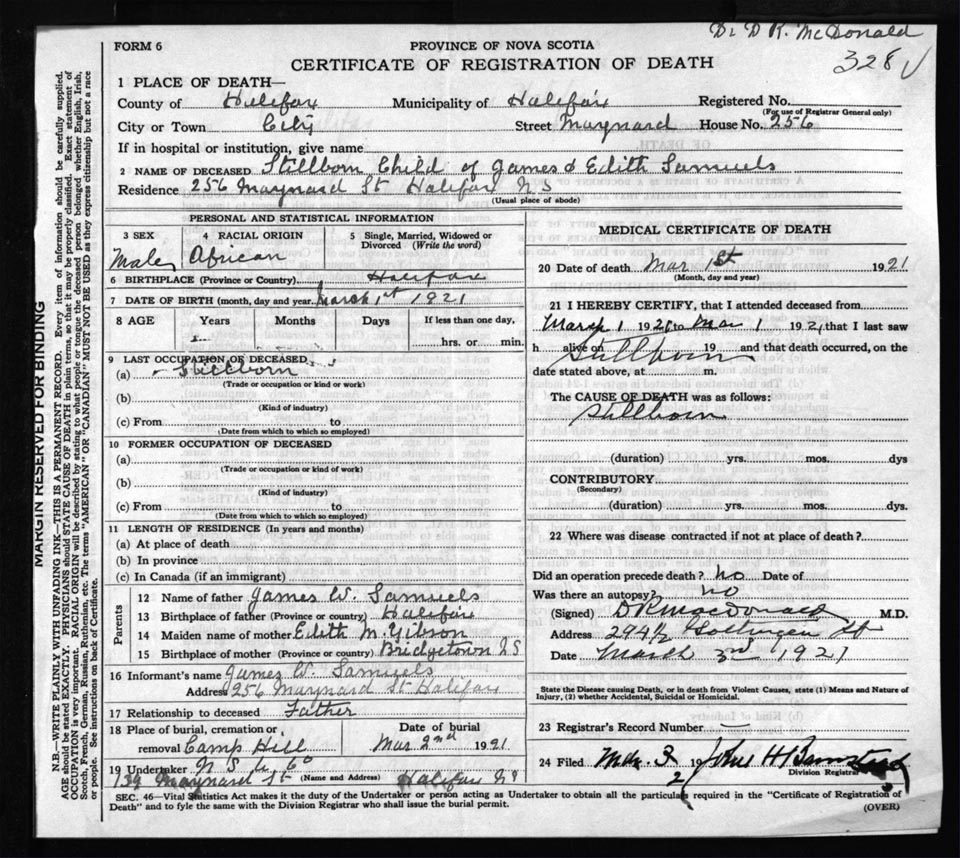 Dr D R. McDonald
328
FORM 6
PROVINCE OF NOVA SCOTIA
CERTIFICATE OF REGISTRATION OF DEATH
1 PLACE OF DEATH—
County of Halifax Municipality of Halifax Registered No.
(For use of Registrar General only)
City or Town City Street Maynard House No. 256
If in hospital or institution, give name
2 NAME OF DECEASED Stillborn Child of James & Edith Samuels
Residence 256 Maynard St Halifax N S
(Usual place of abode)
PERSONAL AND STATISTICAL INFORMATION
3 SEX 4 RACIAL ORIGIN 5 Single, Married, Widowed or Divorced (Write the word)
Male African
6 BIRTHPLACE (Province or Country) Halifax
7 DATE OF BIRTH (month, day and year) March 1st 1921
8 AGE Years Months Days If less than one day,
hrs. or min.
9 LAST OCCUPATION OF DECEASED
(a) Stillborn
(Trade or occupation or kind or work)
(b)
(Kind of industry)
(c) From to
(Date from which to which so employed)
10 FORMER OCCUPATION OF DECEASED
(a)
(Trade or occupation or kind of work)
(b)
(Kind of industry)
(c) From to
(Date from which to which so employed)
11 LENGTH OF RESIDENCE (In years and months)
(a) At place of death
(b) In province
(c) In Canada (if an immigrant)
Parents
12 Name of father James W. Samuels
13 Birthplace of father (Province or country) Halifax
14 Maiden name of mother Edith M. Gibson
15 Birthplace of mother (Province or country) Bridgetown N S
16 Informant's name James W. Samuels
Address 256 Maynard St Halifax
17 Relationship to deceased Father
18 Place of burial, cremation or Date of burial
removal Camp Hill Mar 2nd 1921
19 Undertaker N S U Co
139 Maynard St (Name and Address) Halifax N S
MEDICAL CERTIFICATE OF DEATH
20 Date of death Mar 1st 1921
(Month, day and year)
21 I HEREBY CERTIFY, that I attended deceased from
March 1 1921 to Mar 1 1921 that I last saw
h alive on Stillborn 19 and that death occurred, on the
date stated above, at m.
The CAUSE OF DEATH was as follows:
Stillborn
(duration) yrs. mos. dys
CONTRIBUTORY
(Secondary)
(duration) yrs. mos. dys.
22 Where was disease contracted if not at place of death?
Did an operation precede death? No Date of
Was there an autopsy? no
(Signed) D R MacDonald M.D.
Address 294½ Gottingen St
Date March 3rd 1921
State the Disease causing Death, or in death from Violent Causes, state (1) Means and Nature of
Injury, (2) whether Accidental, Suicidal or Homicidal.
23 Registrar's Record Number
24 Filed Mar. 3 192 John H Barnstead
Division Registrar
SEC. 46—Vital Statistics Act makes it the duty of the Undertaker or person acting as Undertaker to obtain all the particulars required in the "Certificate of Registration of
Death" and to fyle the same with the Division Registrar who shall issue the burial permit.
(OVER)
MARGIN RESERVED FOR BINDING
N.B.—WRITE PLAINLY WITH UNFADING INK—THIS IS A PERMANENT RECORD. Every item of information should be carefully supplied.
AGE should be stated EXACTLY. PHYSICIANS should STATE CAUSE OF DEATH in plain terms, so that it may be properly classified. Exact statement of
OCCUPATION is very important. RACIAL ORIGIN will be described by stating to what people or tongue the deceased person belonged whether English, Irish,
Scotch, French, German, Russian, Ruthenian, etc. The terms "AMERICAN" or "CANADIAN" MUST NOT BE USED as they express citizenship but not a race
or people. See instructions on back of Certificate.